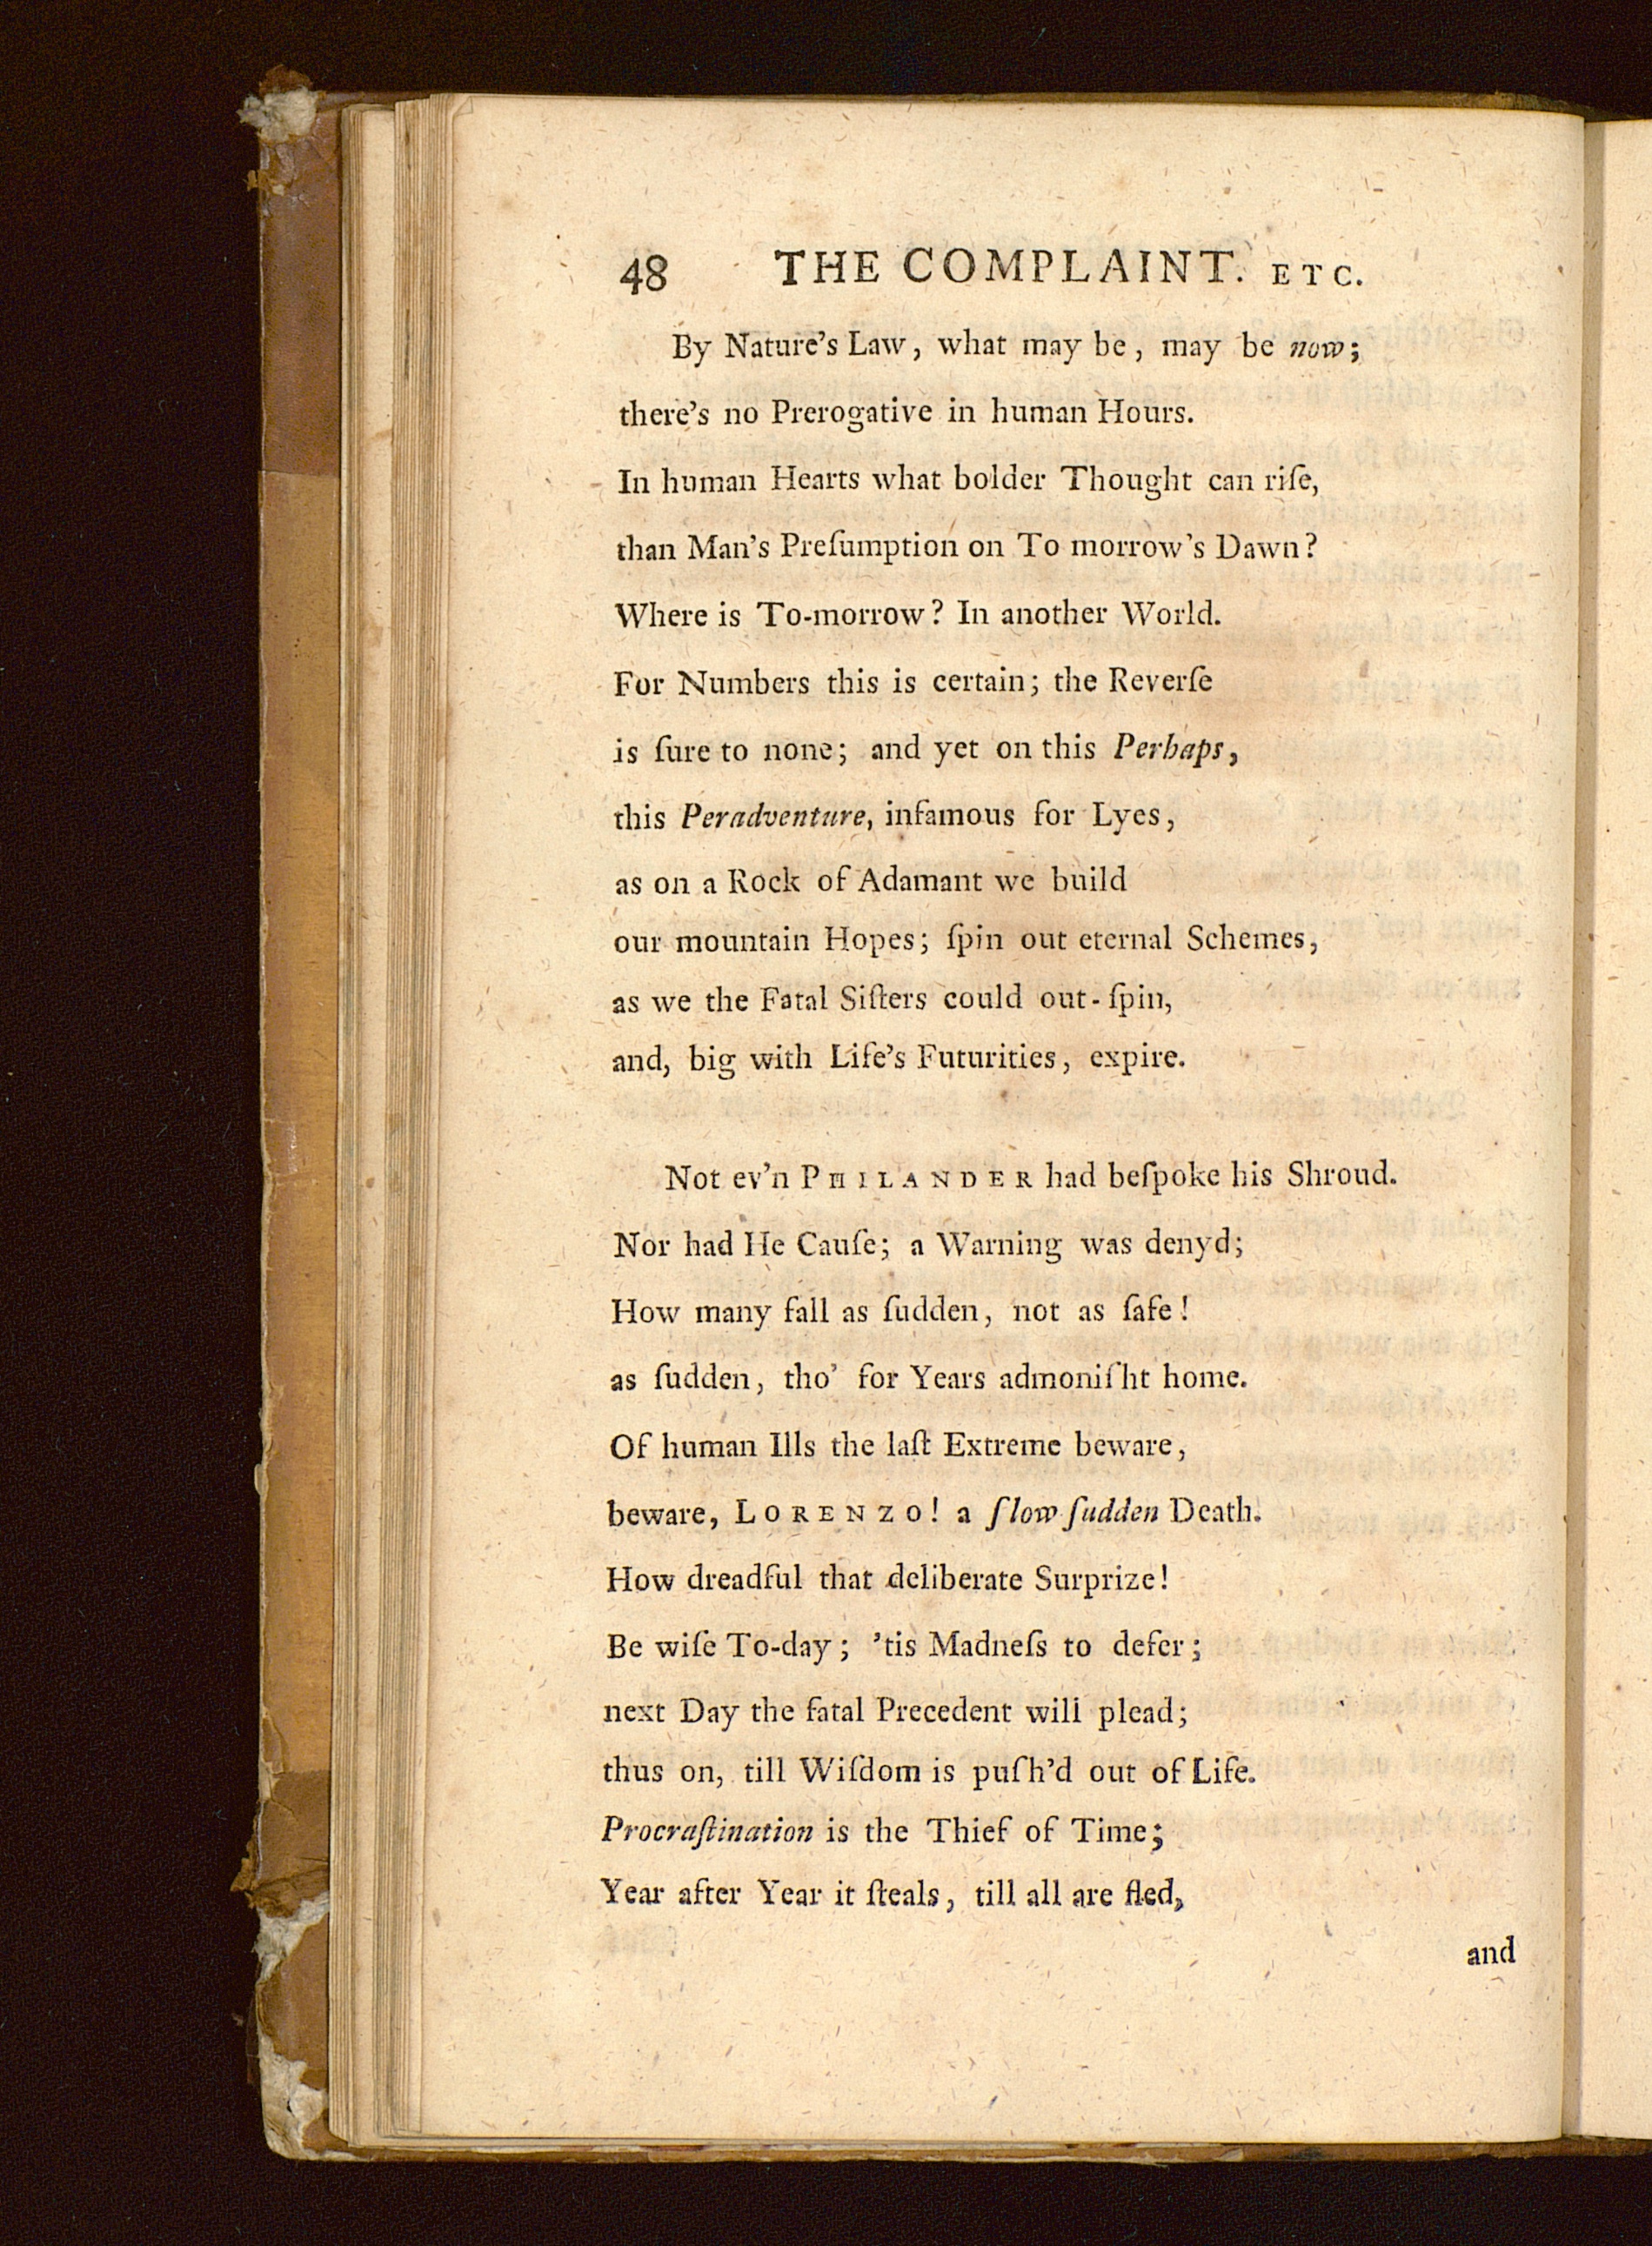 48 THE COMPLAINT. ETC.
By Nature's Law, what may be, may be now;
there's no Prerogative in human Hours.
In human Hearts what bolder Thought can riſe,
than Man's Preſumption on To morrow's Dawn?
Where is To-morrow? In another World.
For Numbers this is certain; the Reverſe
is ſure to none; and yet on this Perhaps,
this Peradventure, infamous for Lyes,
as on a Rock of Adamant we build
our mountain Hopes; ſpin out eternal Schemes,
as we the Fatal Siſters could out-ſpin,
and, big with Life's Futurities, expire.
Not ev'n PHILANDER had beſpoke his Shroud.
Nor had He Cauſe; a Warning was denyd;
How many fall as ſudden, not as ſafe!
as ſudden, tho' for Years admoniſht home.
Of human Ills the laſt Extreme beware,
beware, LORENZO! a ſlow ſudden Death.
How dreadful that deliberate Surprize!
Be wiſe To-day; 'tis Madneſs to defer;
next Day the fatal Precedent will plead;
thus on, till Wiſdom is puſh'd out of Life.
Procraſtination is the Thief of Time;
Year after Year it ſteals, till all are fled,
and